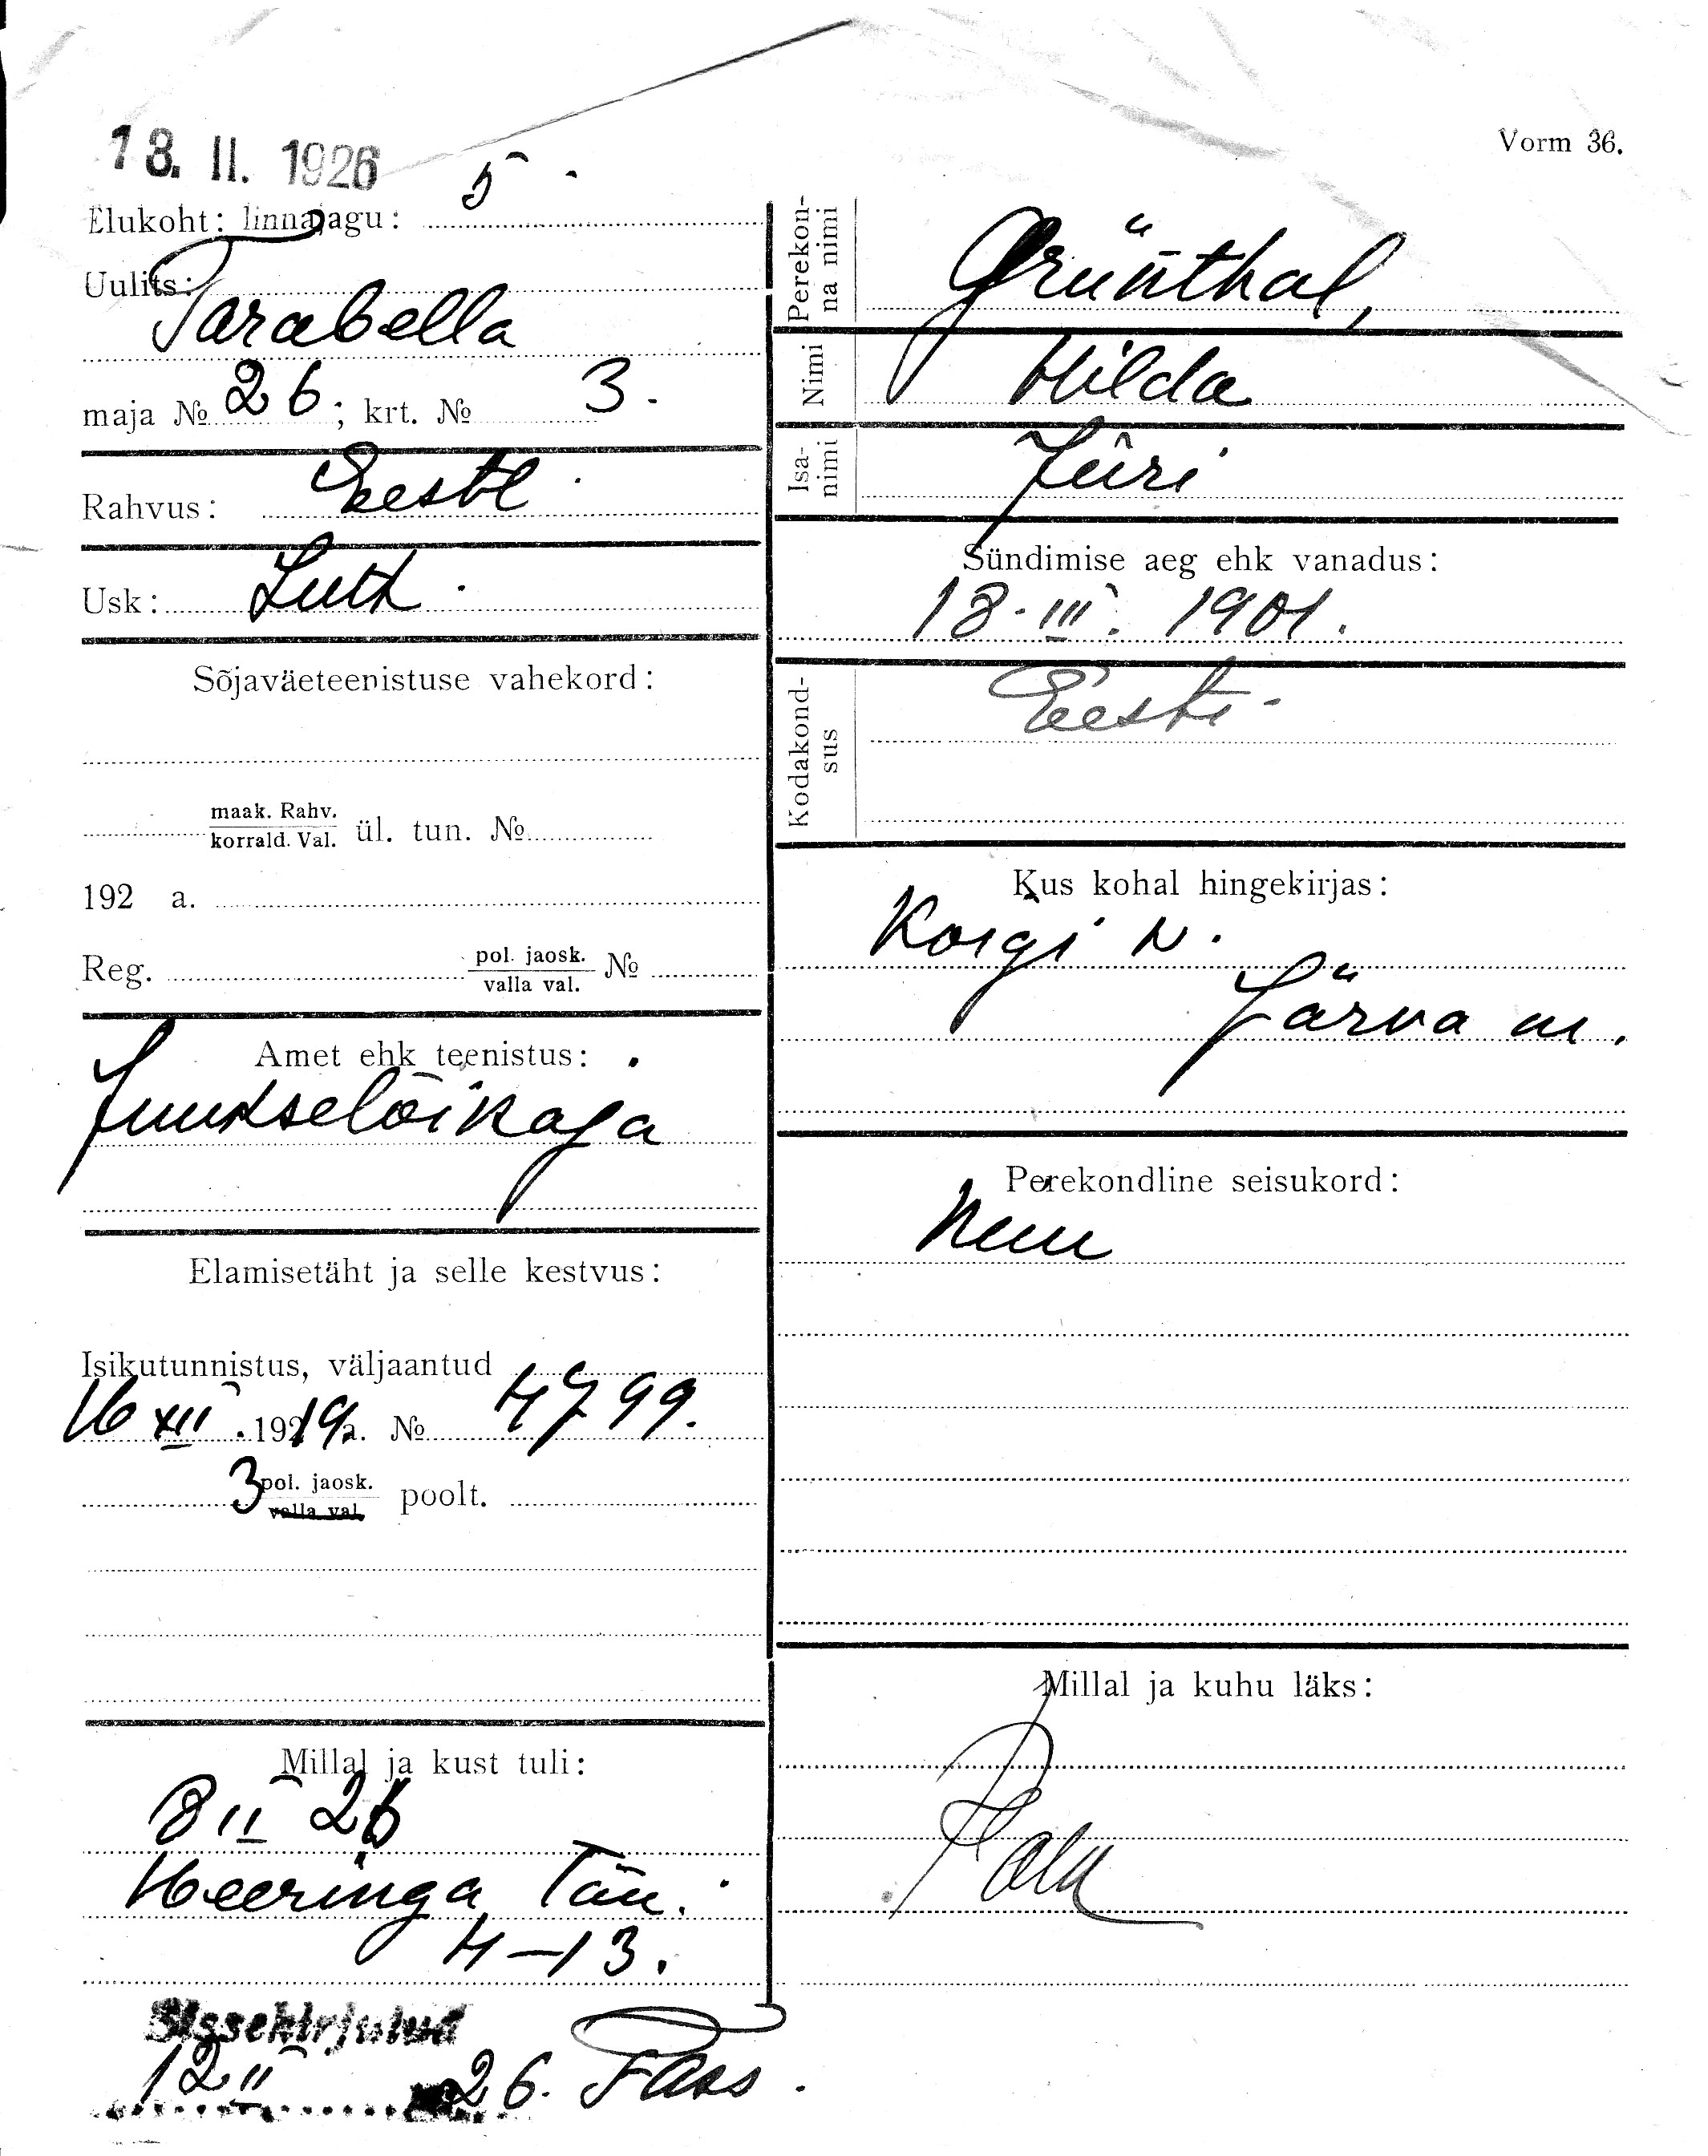 13. II. 1926
Vorm 36.
Elukoht: linnajagu: 5
Uulits:
Tarabella
maja № 26; krt. № 3.
Rahvus: Eesti
Usk: Luth.
Sõjaväeteenistuse vahekord:
maak. Rahv.
korrald. Val. ül. tun. №
192 a.
Reg. pol. jaosk. №
valla val.
Amet ehk teenistus:
Juukselõikaja
Elamisetäht ja selle kestvus:
Isikutunnistus, väljaantud
16 XII. 1919 a. № 4799.
3 pol. jaosk. poolt.
valla val.
Millal ja kust tuli:
8 II 26
Heeringa tän.
4-13.
Sissekirjutud
12 II 26.
Perekon-
na nimi
Grünthal,
Nimi
Hilda
Isa-
nimi
Jüri
Sündimise aeg ehk vanadus:
18. III. 1901.
Kodakond-
sus
Eesti-
Kus kohal hingekirjas:
Koigi v.
Järva m.
Perekondline seisukord:
Millal ja kuhu läks: